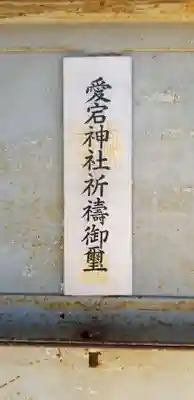 愛宕神社祈禱御璽